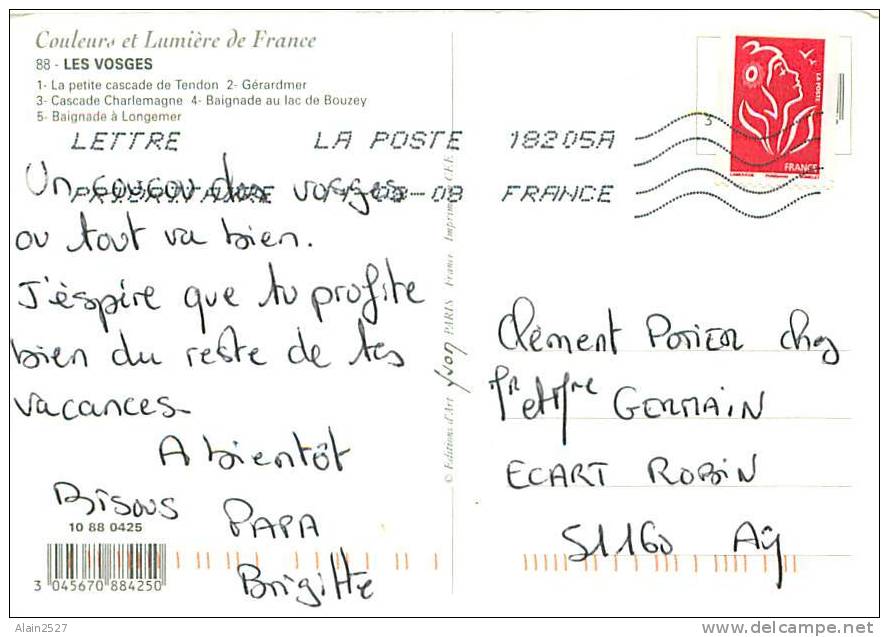 Couleurs et Lumière de France
88 - LES VOSGES
1- La petite cascade de Tendon 2- Gérardmer
3- Cascade Charlemagne 4- Baignade au lac de Bouzey
5- Baignade à Longemer
LETTRE LA POSTE 18205A
PRIORITAIRE 08-08 FRANCE
Un coucou des vosges
ou tout va bien.
J'éspire que tu profite
bien du reste de tes
vacances-
A bientôt
Bisous PAPA
Brigitte
10 88 0425
3 045670 884250
© Editions d'Art Yvon PARIS France Imprimé
LA POSTE
FRANCE
Clément POTIER chez
Mr et Mme GERMAIN
ECART ROBIN
51160 Aÿ
Alain2527
www.delcampe.net